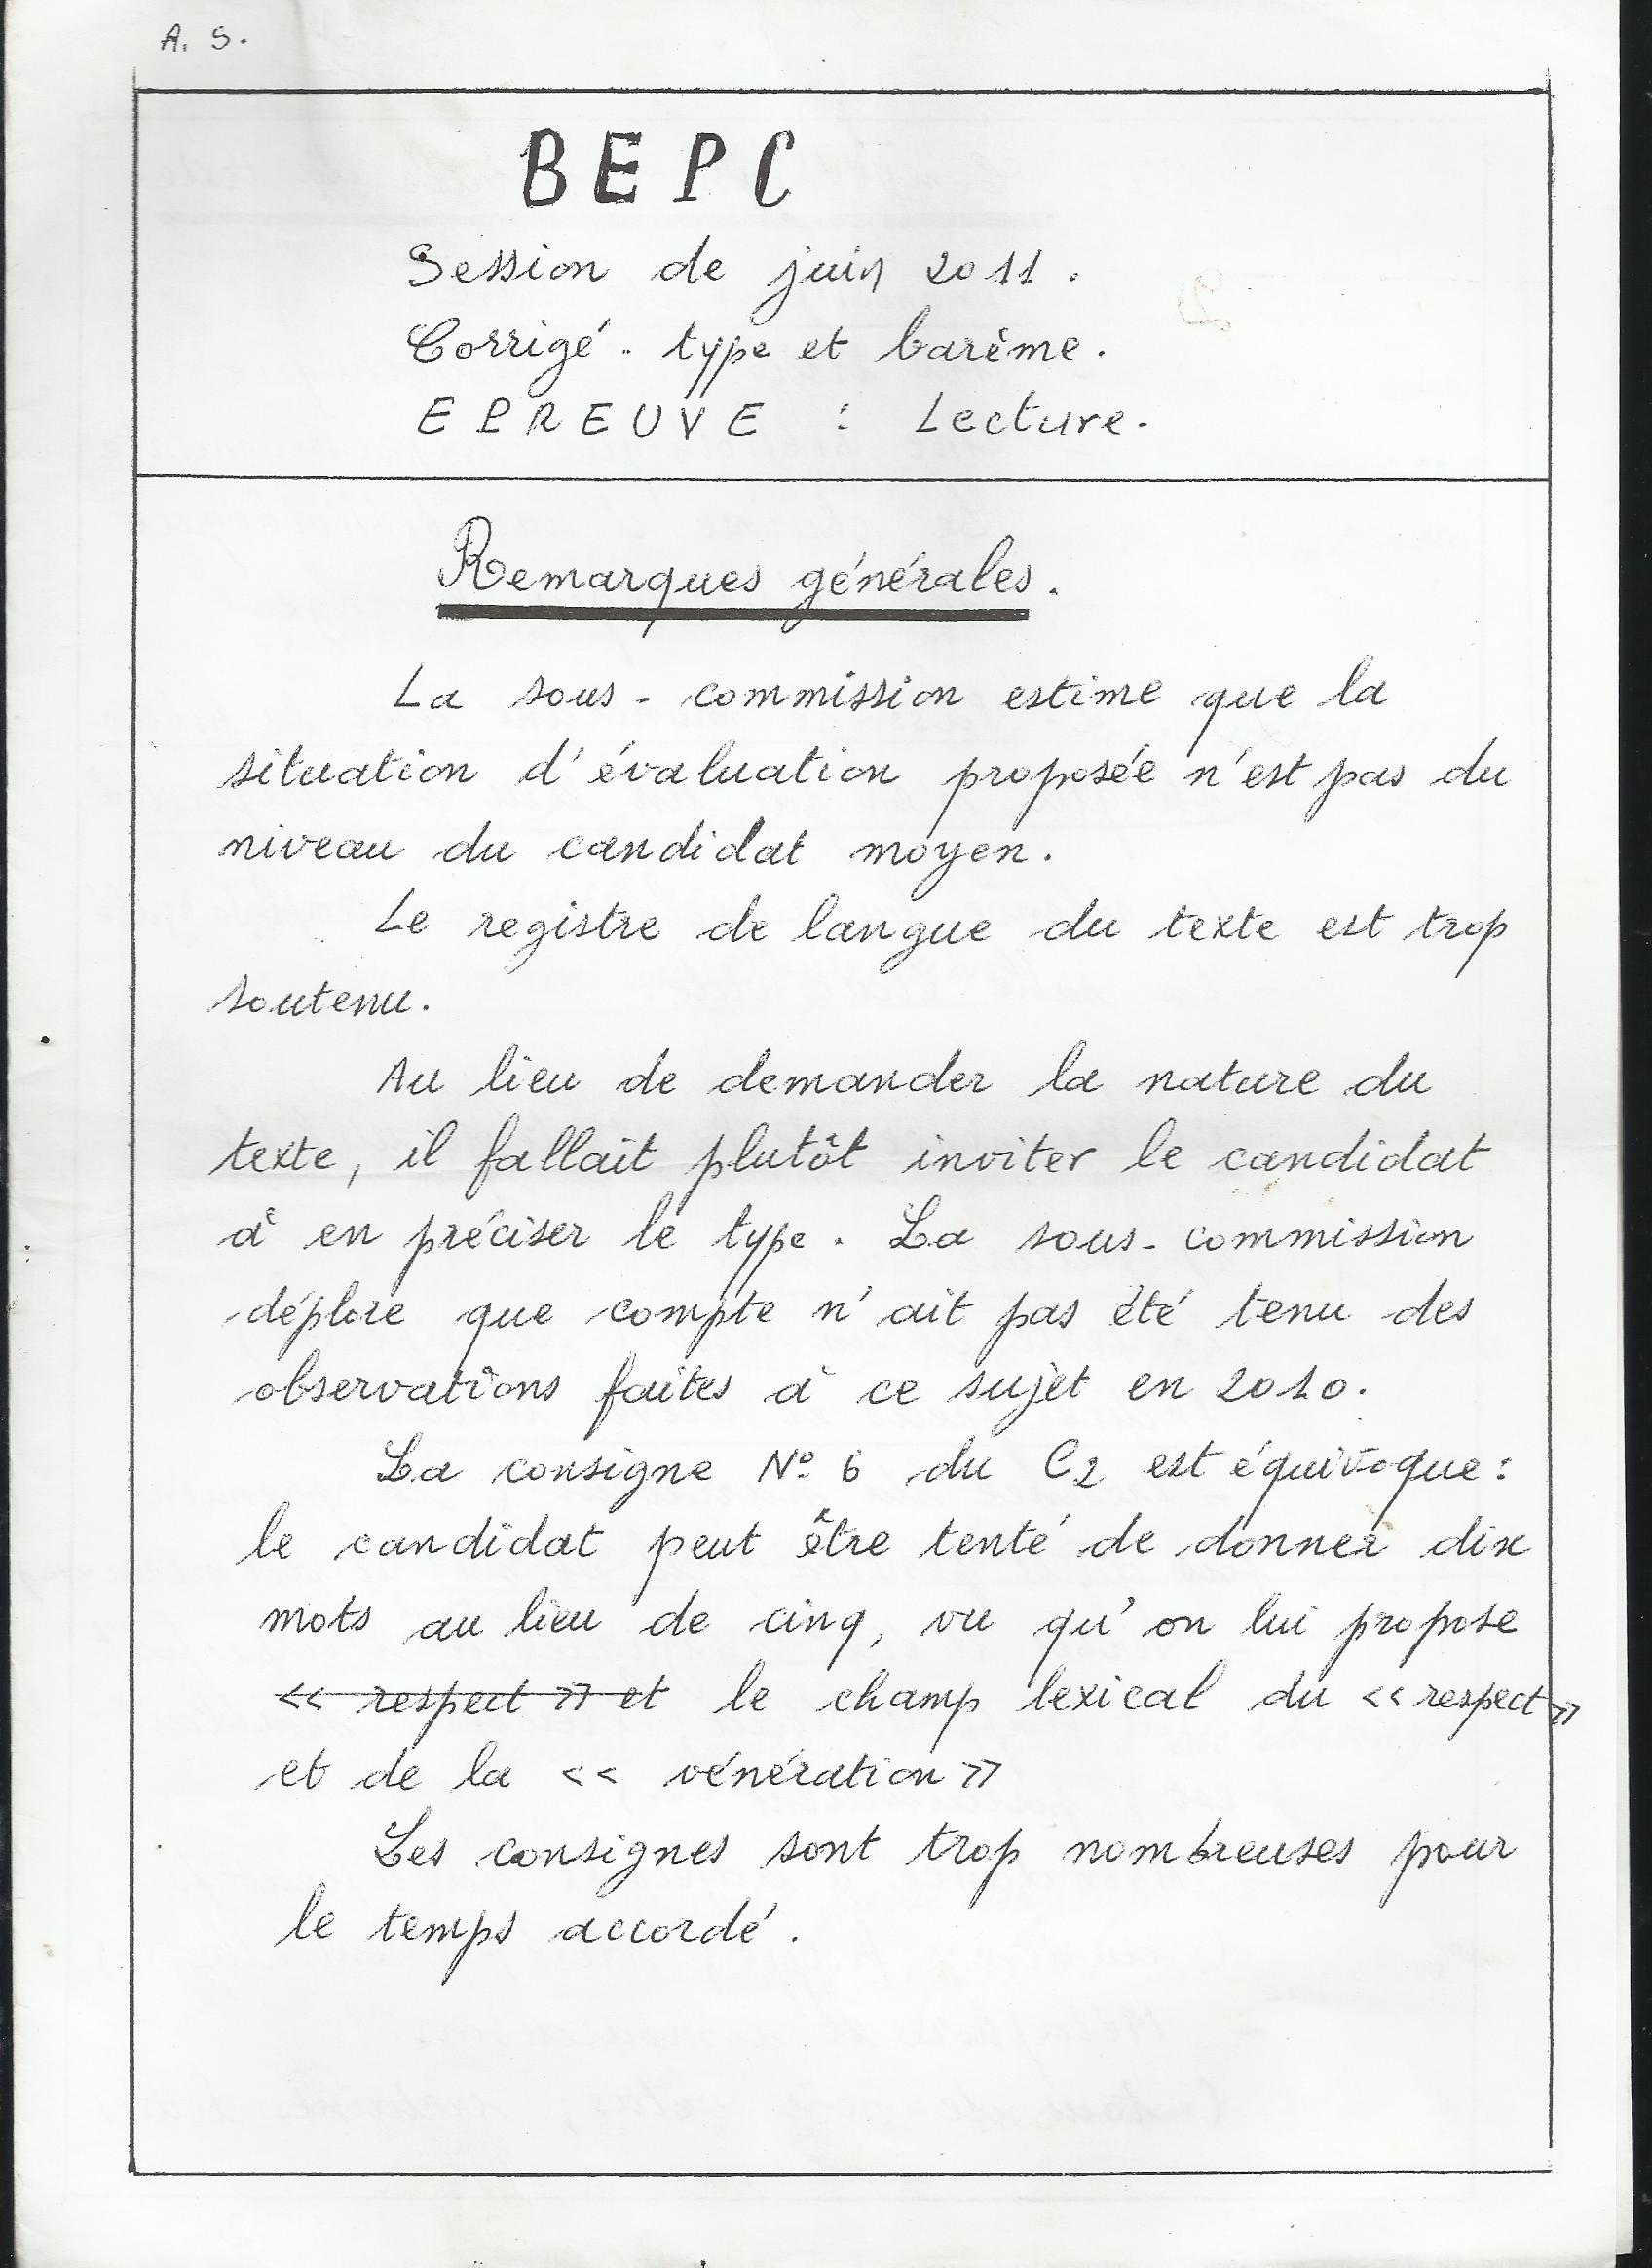 A. S.
BEPC
Session de juin 2011.
Corrigé-type et barème.
EPREUVE : Lecture.
Remarques générales.
La sous-commission estime que la
situation d'évaluation proposée n'est pas du
niveau du candidat moyen.
Le registre de langue du texte est trop
soutenu.
Au lieu de demander la nature du
texte, il fallait plutôt inviter le candidat
à en préciser le type. La sous-commission
déplore que compte n'ait pas été tenu des
observations faites à ce sujet en 2010.
La consigne N° 6 du C2 est équivoque :
le candidat peut être tenté de donner dix
mots au lieu de cinq, vu qu'on lui propose
<< respect >> et le champ lexical du << respect >>
et de la << vénération >>
Les consignes sont trop nombreuses pour
le temps accordé.